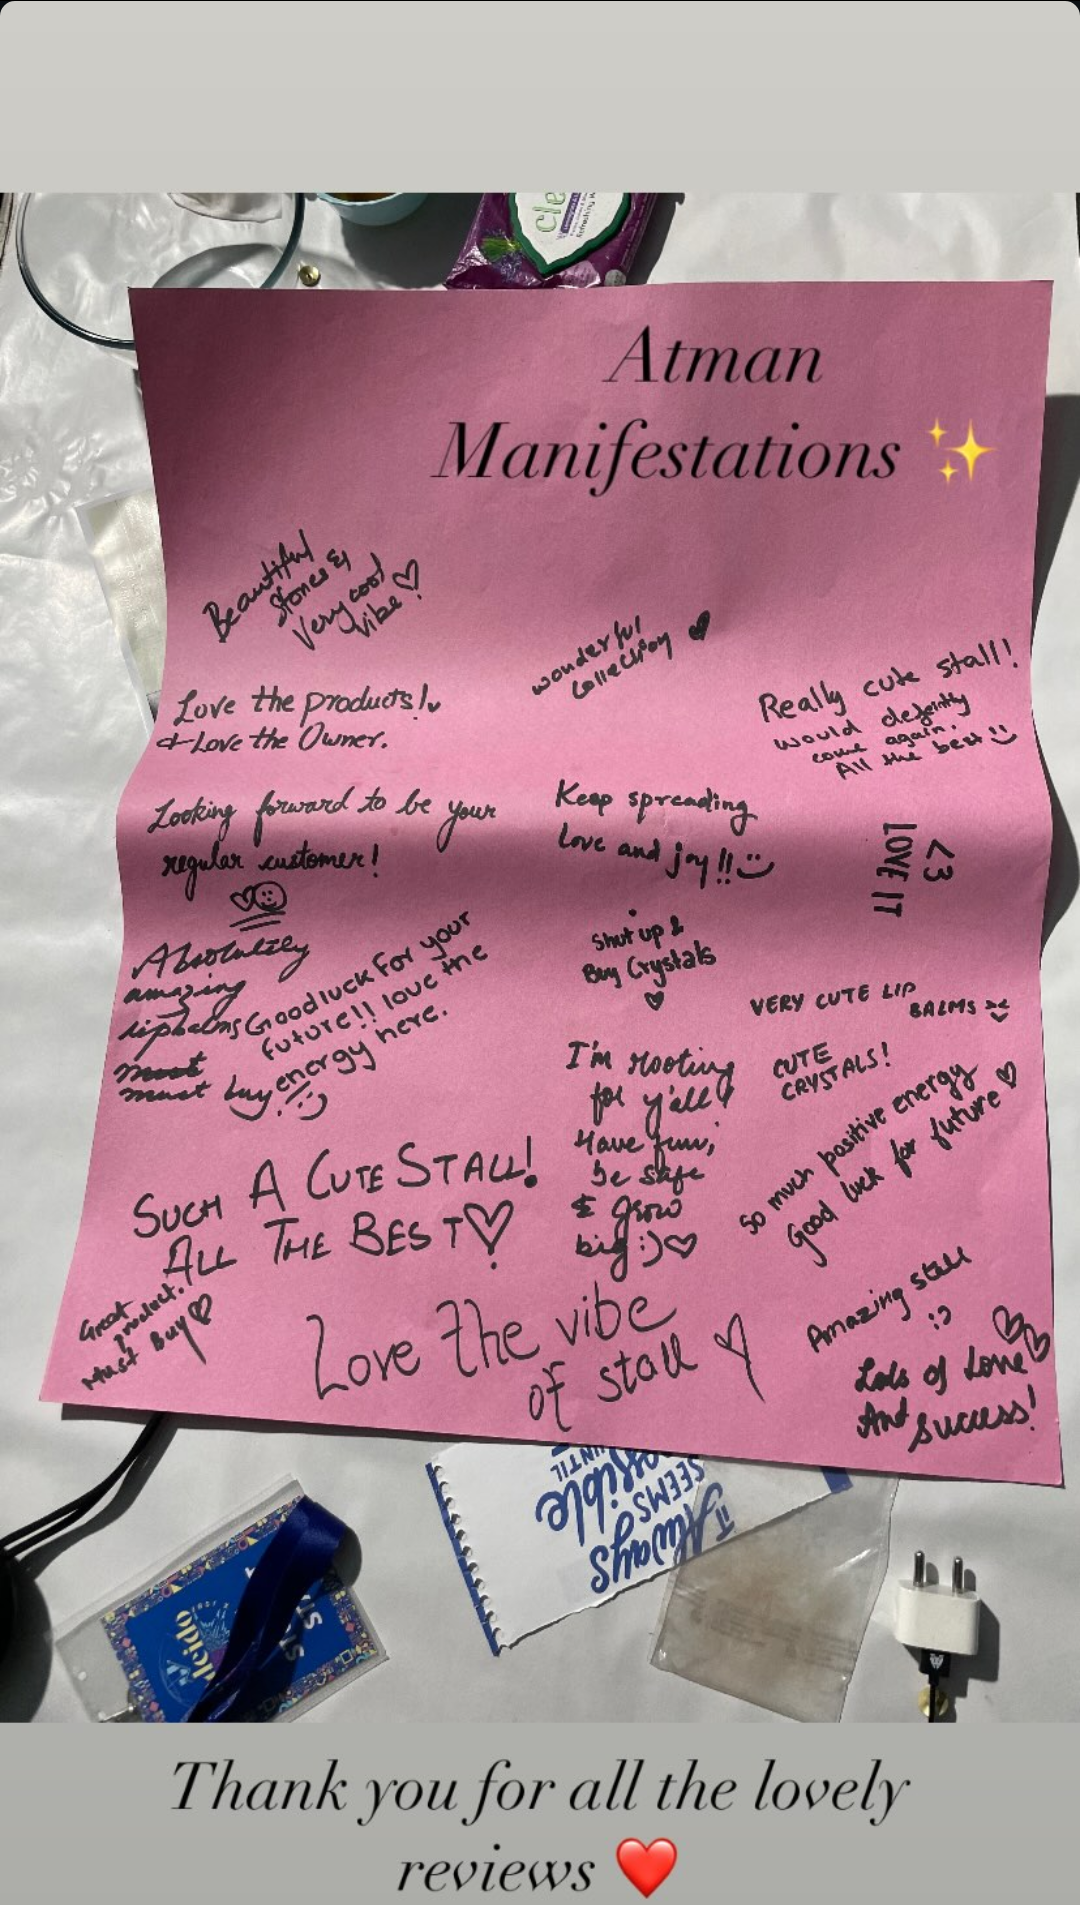 cle
Atman
Manifestations ✨
Beautiful
stones &
Very cool
vibe! ♡
wonderful
collection ♥
Really cute stall!
would definitly
come again.
All the best :)
Love the products! ♥
& Love the Owner.
Looking forward to be your
regular customer!
♡☺
Keep spreading
love and joy!! :)
<3
LOVE IT
Absolutely
amazing
lipbalms
must
must buy!!
Good luck for your
future!! love the
energy here.
:)
Shut up &
Buy Crystals
♡
VERY CUTE LIP
BALMS
CUTE
CRYSTALS!
I'm rooting
for y'all!
Have fun,
be safe
& grow
big :) ♡
so much positive energy
Good luck for future ♡
SUCH A CUTE STALL!
ALL THE BEST ♡
Great
product.
Must Buy ♡
Love the vibe
of stall ♡
Amazing stall
:)
Lots of Love
And success!
Always
SEEMS
UNTIL
deido
Thank you for all the lovely
reviews ❤️